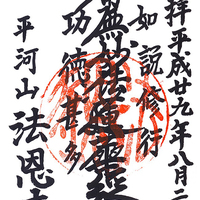 拝平成廿九年八月二
如説修行
妙法蓮華経
功徳甚多
平河山法恩